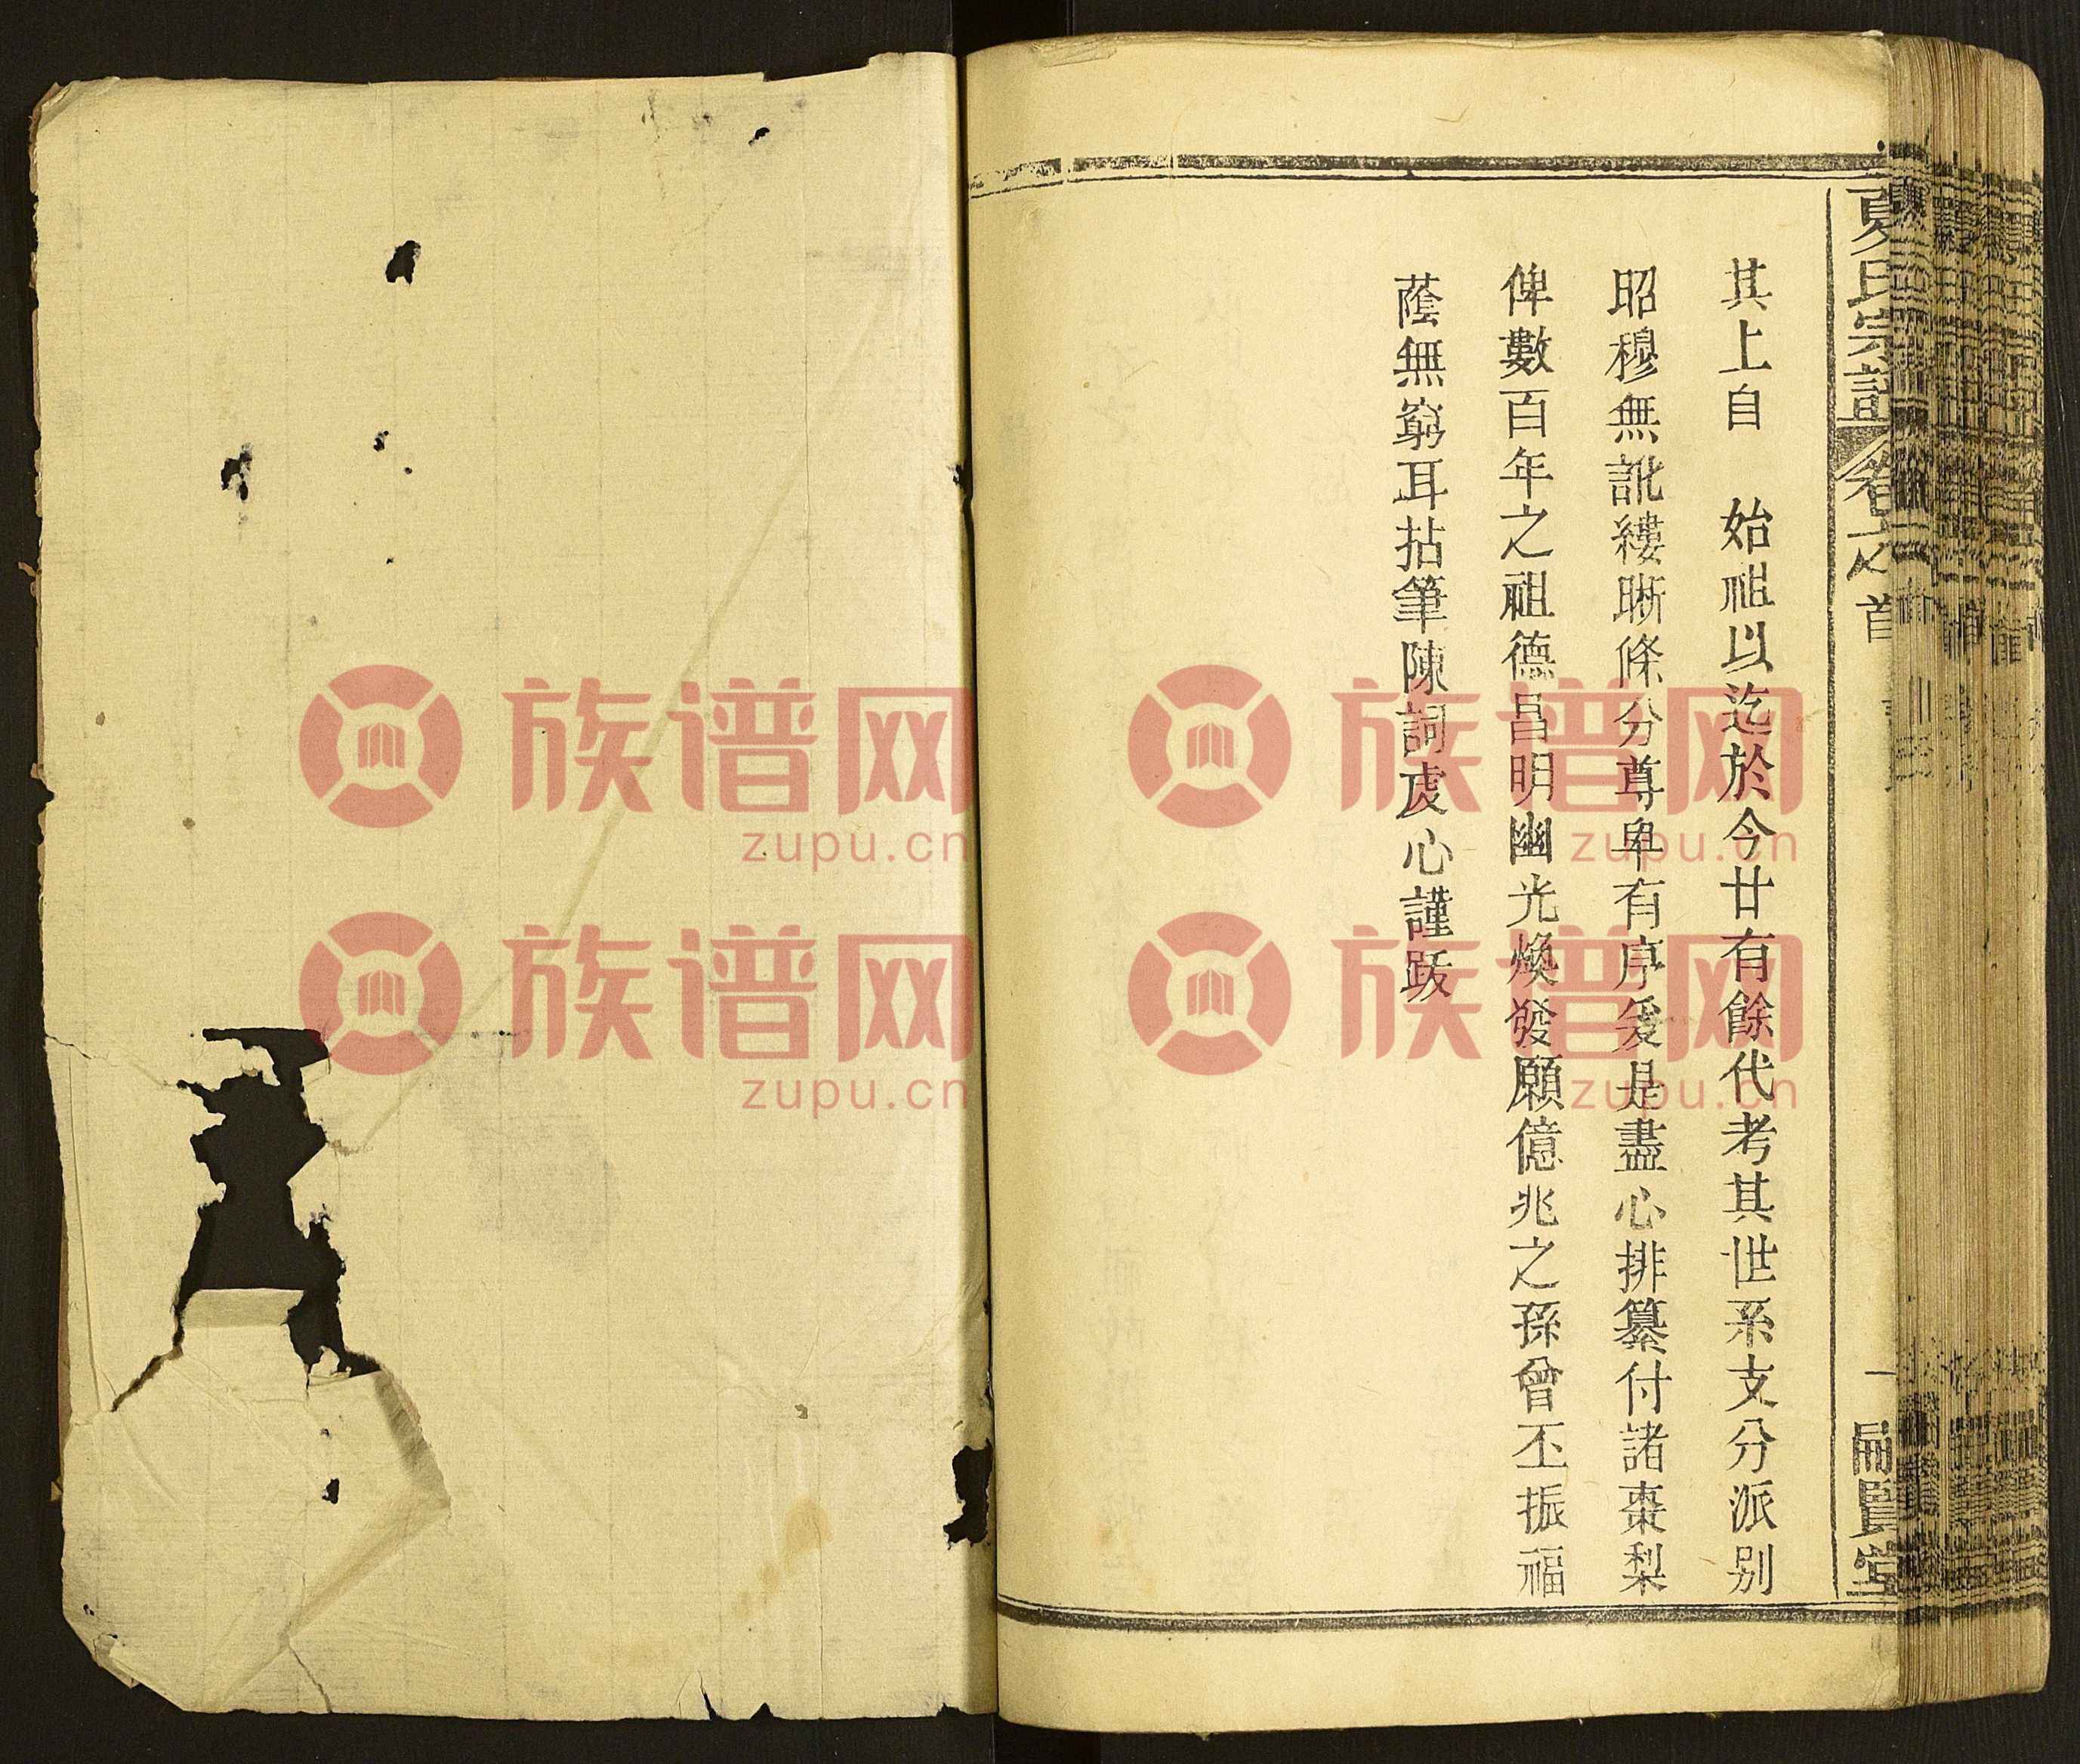 其上自　始祖以迄於今廿有餘代考其世系支分派别
昭穆無訛縷晰條分尊卑有序爰是盡心排纂付諸棗梨
俾數百年之祖德昌明幽光煥發願億兆之孫曾丕振福
蔭無窮耳拈筆陳詞虔心謹跋
夏氏宗譜 卷之首 一 嗣賢堂
族谱网
zupu.cn
族谱网
zupu.cn
族谱网
zupu.cn
族谱网
zupu.cn